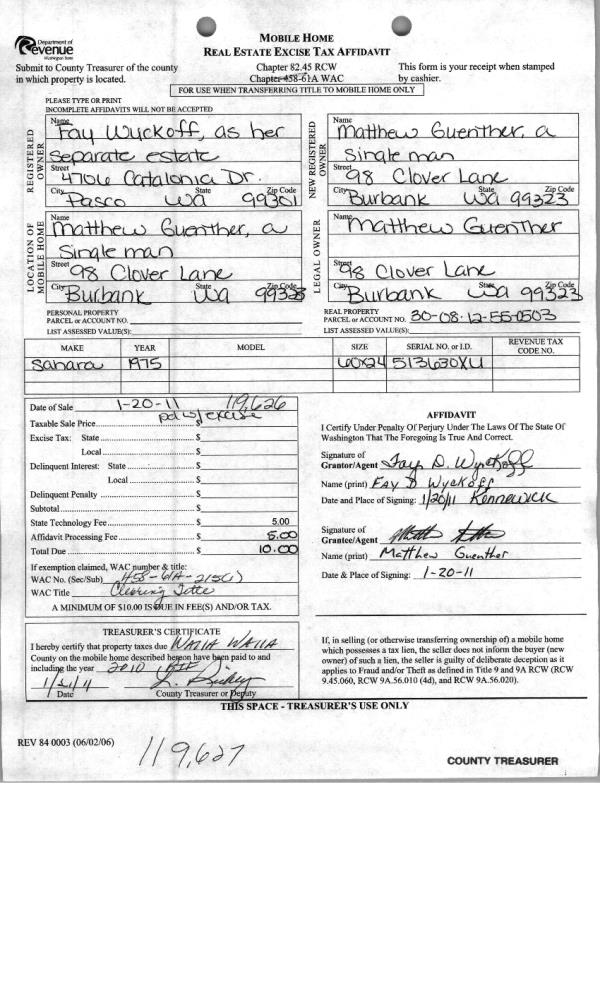 Department of
Revenue
Washington State
MOBILE HOME
REAL ESTATE EXCISE TAX AFFIDAVIT
Submit to County Treasurer of the county
in which property is located.
Chapter 82.45 RCW
Chapter 458-61A WAC
This form is your receipt when stamped
by cashier.
FOR USE WHEN TRANSFERRING TITLE TO MOBILE HOME ONLY
PLEASE TYPE OR PRINT
INCOMPLETE AFFIDAVITS WILL NOT BE ACCEPTED
REGISTERED OWNER
Name Fay Wyckoff, as her
separate estate
Street 4706 Catalonia Dr.
City Pasco State Wa Zip Code 99301
NEW REGISTERED OWNER
Name Matthew Guenther, a
single man
Street 98 Clover Lane
City Burbank State Wa Zip Code 99323
LOCATION OF MOBILE HOME
Name Matthew Guenther, a
Single man
Street 98 Clover Lane
City Burbank State Wa Zip Code 99323
LEGAL OWNER
Name Matthew Guenther
Street 98 Clover Lane
City Burbank State Wa Zip Code 99323
PERSONAL PROPERTY
PARCEL or ACCOUNT NO.
LIST ASSESSED VALUE(S):
REAL PROPERTY
PARCEL or ACCOUNT NO. 30-08-12-55-0503
LIST ASSESSED VALUE(S):
MAKE YEAR MODEL SIZE SERIAL NO. or I.D. REVENUE TAX CODE NO.
Sahara 1975 60x24 513630XU
Date of Sale 1-20-11 119,626
Taxable Sale Price $ pd w/excise
Excise Tax: State $
Local $
Delinquent Interest: State $
Local $
Delinquent Penalty $
Subtotal $
State Technology Fee $ 5.00
Affidavit Processing Fee $ 5.00
Total Due $ 10.00
If exemption claimed, WAC number & title:
WAC No. (Sec/Sub) 458-61A-215(1)
WAC Title Clearing Title
A MINIMUM OF $10.00 IS DUE IN FEE(S) AND/OR TAX.
AFFIDAVIT
I Certify Under Penalty Of Perjury Under The Laws Of The State Of
Washington That The Foregoing Is True And Correct.
Signature of
Grantor/Agent Fay D. Wyckoff
Name (print) Fay D Wyckoff
Date and Place of Signing: 1/20/11 Kennewick
Signature of
Grantee/Agent
Name (print) Matthew Guenther
Date & Place of Signing: 1-20-11
TREASURER'S CERTIFICATE
I hereby certify that property taxes due Walla Walla
County on the mobile home described hereon have been paid to and
including the year 2010
Date County Treasurer or Deputy
If, in selling (or otherwise transferring ownership of) a mobile home
which possesses a tax lien, the seller does not inform the buyer (new
owner) of such a lien, the seller is guilty of deliberate deception as it
applies to Fraud and/or Theft as defined in Title 9 and 9A RCW (RCW
9.45.060, RCW 9A.56.010 (4d), and RCW 9A.56.020).
THIS SPACE - TREASURER'S USE ONLY
REV 84 0003 (06/02/06)
119,627
COUNTY TREASURER